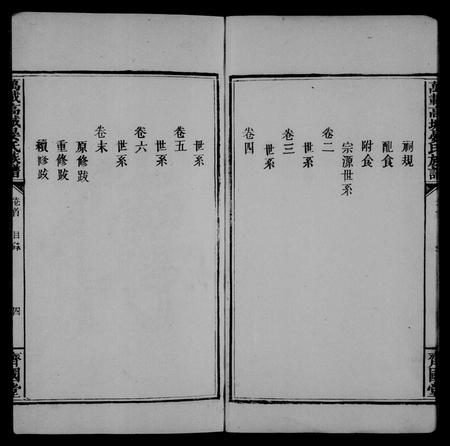 祠規
配食
附食
宗源世系
卷二
世系
卷三
世系
卷四
世系
卷五
世系
卷六
世系
卷末
原修跋
重修跋
續修跋
萬載高城
氏族譜
卷首
目錄
四
齊國堂